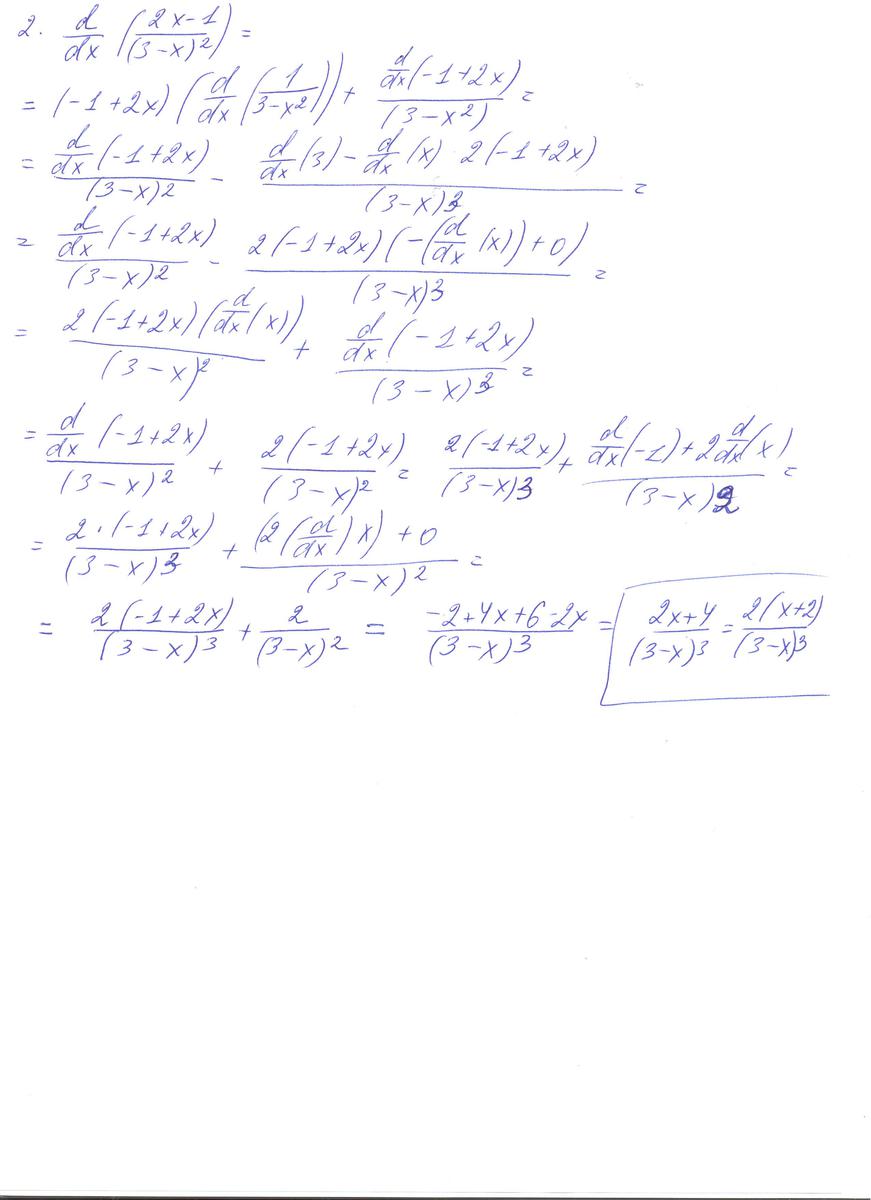 2. d/dx ((2x-1)/(3-x)²) =
= (-1+2x) (d/dx (1/(3-x²))) + (d/dx(-1+2x))/(3-x²) =
= (d/dx (-1+2x))/(3-x)² - (d/dx (3) - d/dx (x) · 2(-1+2x))/(3-x)³ =
= (d/dx (-1+2x))/(3-x)² - (2(-1+2x)(-(d/dx (x))+0))/(3-x)³ =
= (2(-1+2x)(d/dx (x)))/(3-x)² + (d/dx (-1+2x))/(3-x)³ =
= (d/dx (-1+2x))/(3-x)² + (2(-1+2x))/(3-x)² = (2(-1+2x))/(3-x)³ + (d/dx(-1)+2 d/dx(x))/(3-x)² =
= (2·(-1+2x))/(3-x)³ + ((2(d/dx)x)+0)/(3-x)² =
= (2(-1+2x))/(3-x)³ + 2/(3-x)² = (-2+4x+6-2x)/(3-x)³ = (2x+4)/(3-x)³ = (2(x+2))/(3-x)³